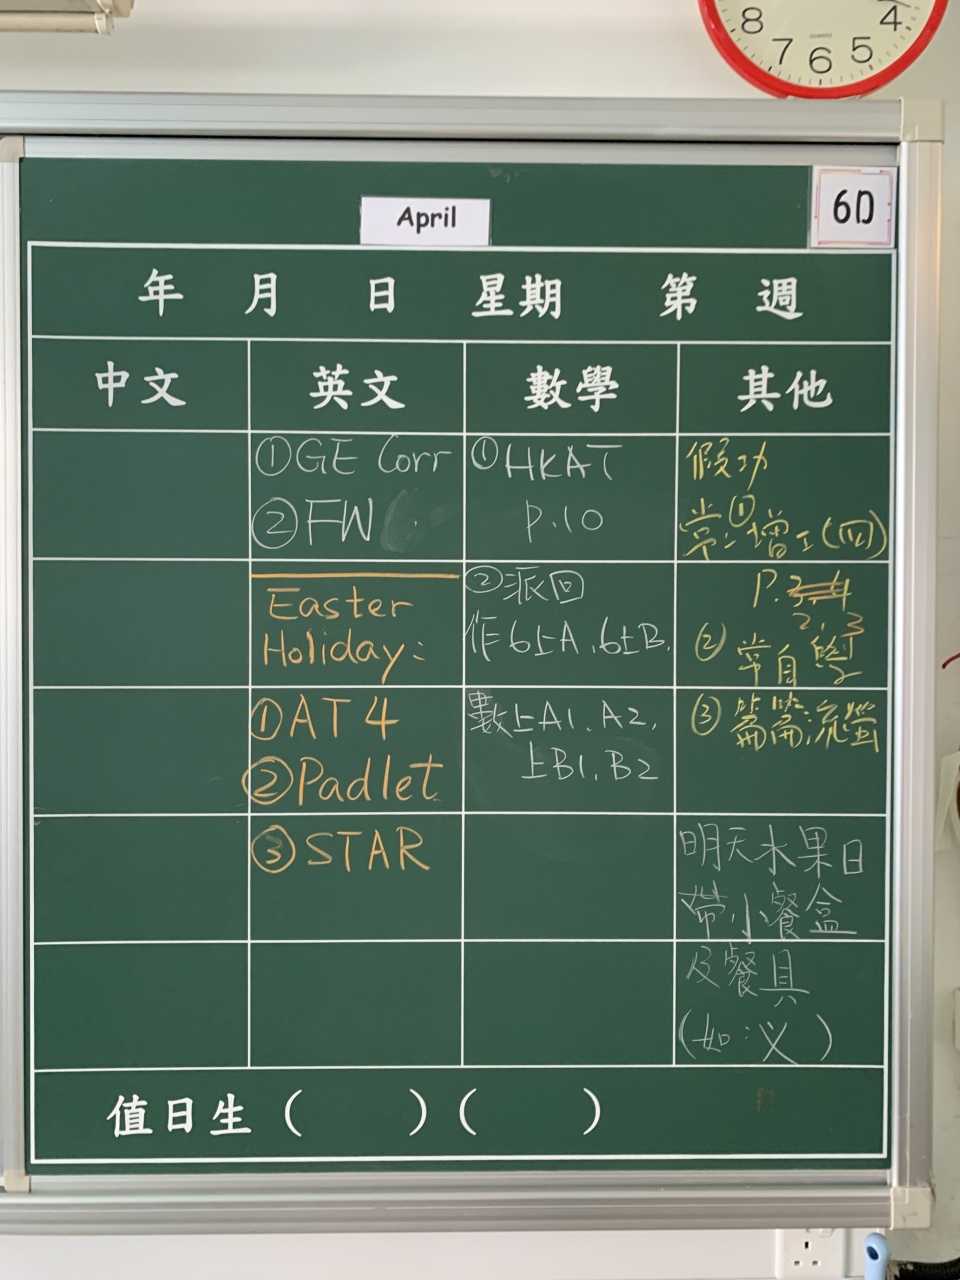 8 7 6 5 4
QUARTZ
April
6D
年 月 日 星期 第 週
中文 英文 數學 其他
①GE Corr
②FW
Easter
Holiday:
①AT 4
②Padlet
③STAR
①HKAT
P.10
②派回
作6上A、6上B、
數上A1、A2,
上B1、B2
假功
①
常:增工(四)
P.3,4
2,3
② 常自學
③ 篇篇流螢
明天水果日
帶小餐盒
及餐具
(如:义)
值日生 ( ) ( )